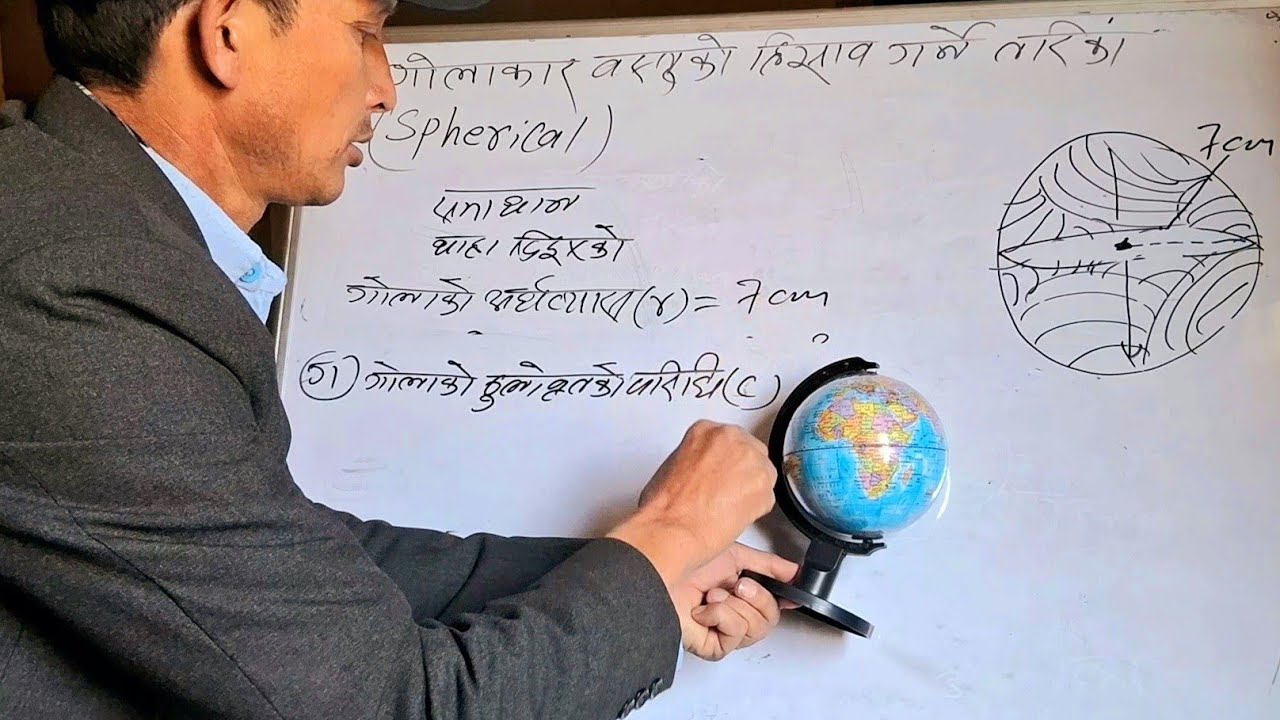 गोलाकार वस्तुको हिसाव गर्ने तरिका
(Spherical)
7cm
यहा दिइएको
गोलाको अर्धव्यास(r) = 7 cm
गोलाको ठुलोवृतको परिधि(C)